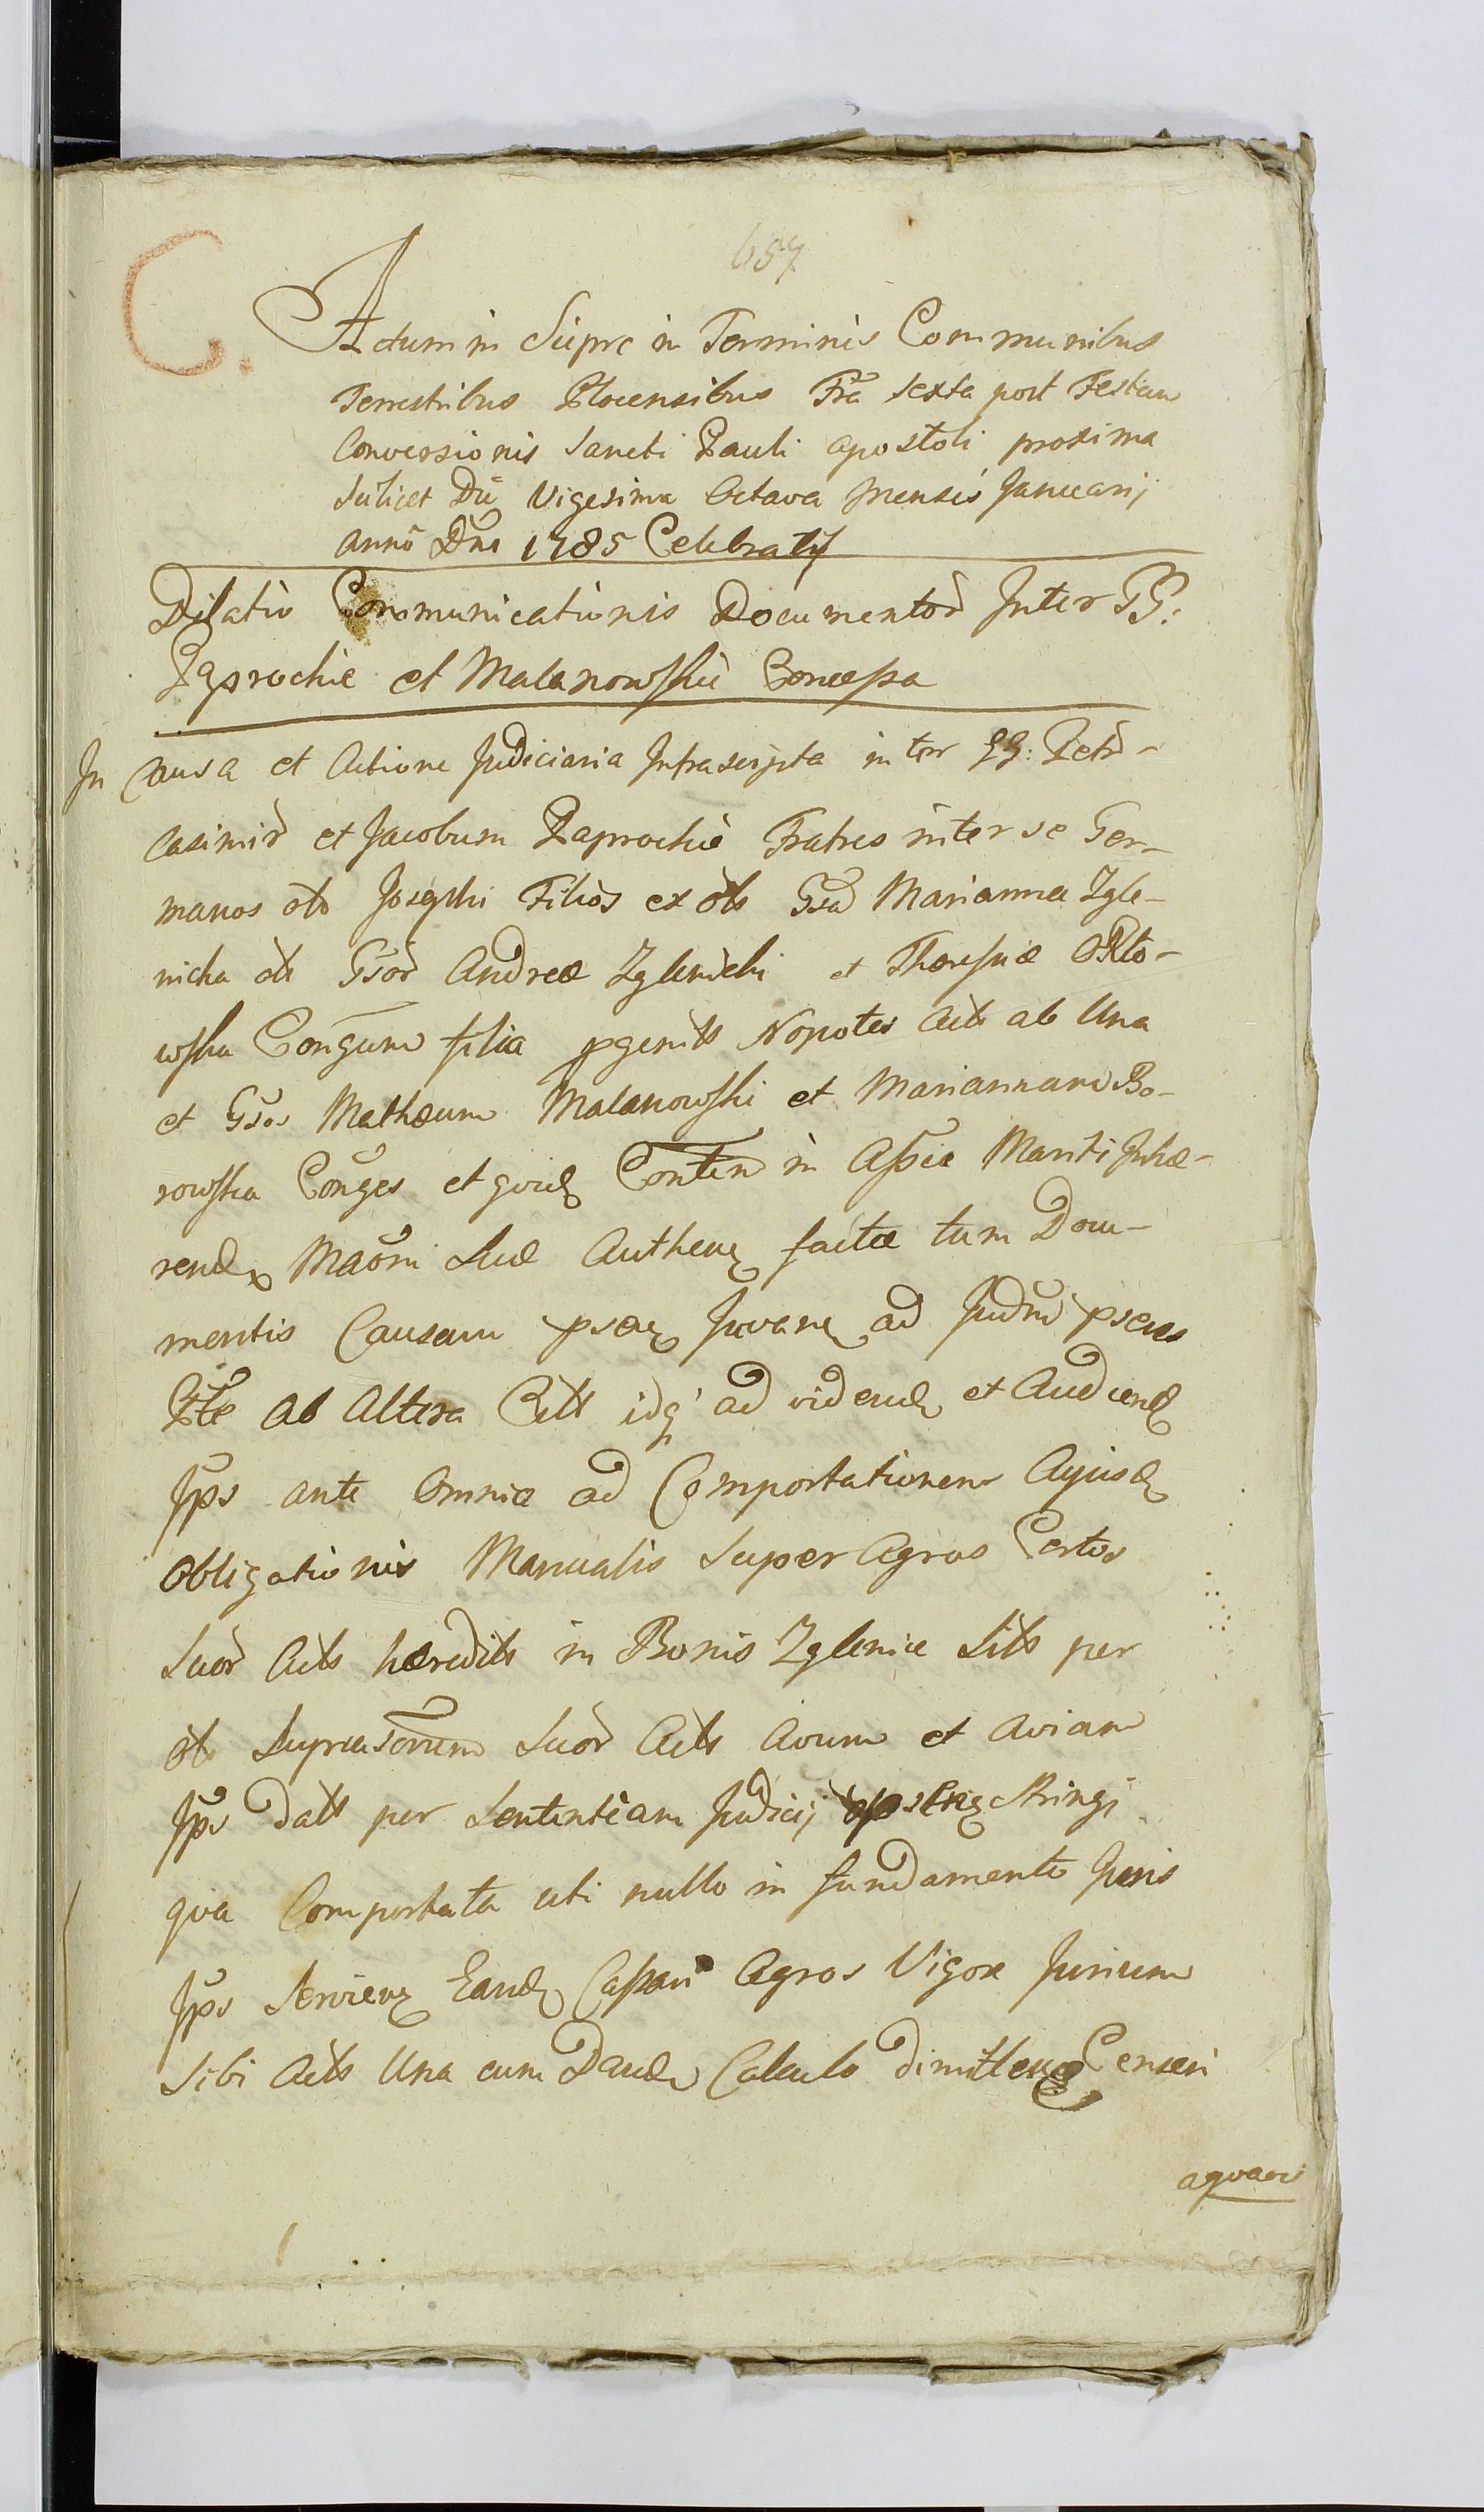 657
C.
Actum in Sieprc in Terminis Communibus
Terrestribus Plocensibus Fra sexta post Festum
Conversionis Sancti Pauli apostoli proxima
Scilicet Die Vigesima Octava Mensis Januarij
Anno Dni 1785 Celebratis
Dilatio Communicationis Documentor Inter GG:
Paprockie et Malanowskie Concessa
In Causa et Actione Judiciaria Infrascripta inter GG: Petr-
Casimir et Jacobum Paprockie Fratres inter se Ger-
manos olo Josephi Filios ex ols Gsa Marianna Zgle-
nicka ols Gsor Andreæ Zglenicki et Theresiæ
wska Conjgum filia pgenits Nepotes Acts ab Una
et Gsos Mathæum Malanowski et Mariannam Bo-
rowska Conjges et quid Conten in Assia Mariti Inhæ-
rend Maoni Suæ Authen factæ tum Docu-
mentis Causam psen Juvan ad Judm psens
Pte ab Altera Citts idq ad vidend et Audiend
Ips ante Omnia ad Comportationem Cujusd
Obligationis Manualis Super Agros Certos
Suor Acts hæredits in Bonis Zglenice Sits per
ols Supra Suor Acts Avum et Aviam
Ips Datt per Sententiam Judicij Stringi
qua Comportata uti nullo in fundamento Juris
Ips Servien Eand Cassari Agros Vigore Jurium
Sibi Acts Una cum Dand Calculo dimitten Censeri